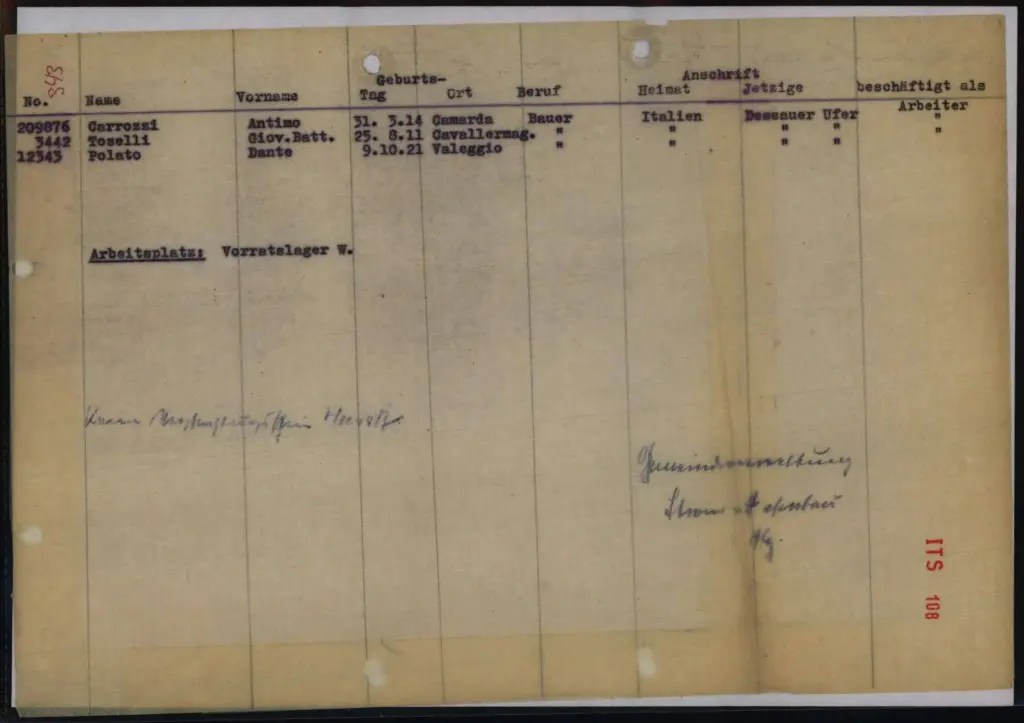 343
Geburts- Anschrift
No. Name Vorname Tag Ort Beruf Heimat Jetzige beschäftigt als
209876 Carrozzi Antimo 31. 3.14 Camarda Bauer Italien Dessauer Ufer Arbeiter
3442 Toselli Giov.Batt. 25. 8.11 Cavallermag. " " " " "
12343 Polato Dante 9.10.21 Valeggio " " " " "
Arbeitsplatz: Vorratslager W.
Gemeindeverwaltung
Strom
ITS 108